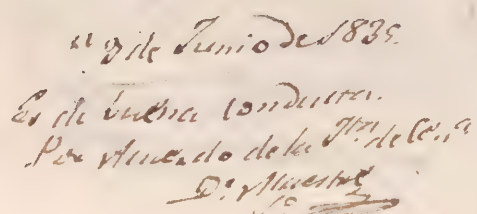 3 de Junio de 1835.
Es de buena conducta.
Por Acuerdo de la Jta de
Dr. Maestre